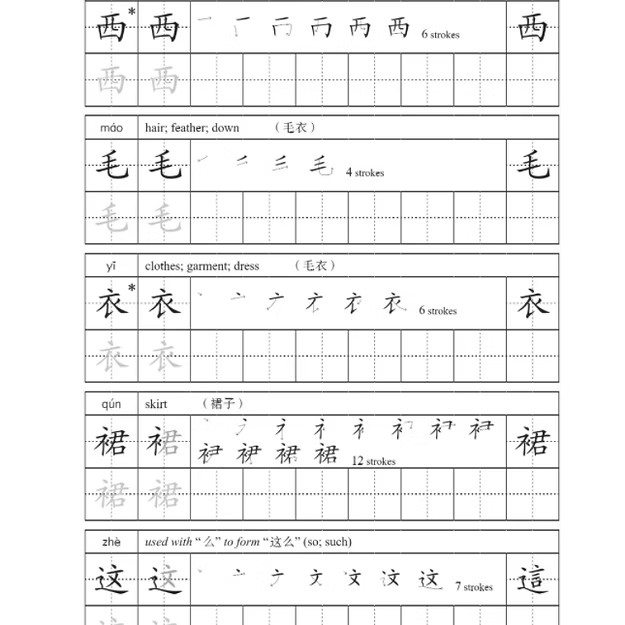 西* 西 6 strokes 西
西 西
máo hair; feather; down （毛衣）
毛 毛 4 strokes 毛
毛 毛
yī clothes; garment; dress （毛衣）
衣* 衣 6 strokes 衣
衣 衣
qún skirt （裙子）
裙 裙 12 strokes 裙
裙 裙
zhè used with “么” to form “这么” (so; such)
这 这 7 strokes 這